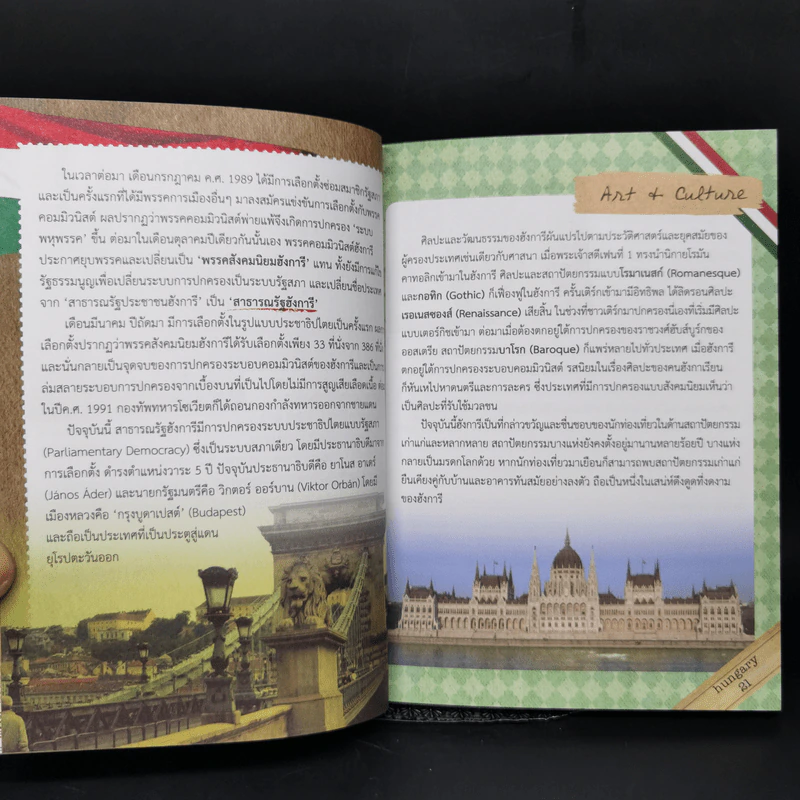 ในเวลาต่อมา เดือนกรกฎาคม ค.ศ. 1989 ได้มีการเลือกตั้งซ่อมสมาชิกรัฐสภา
และเป็นครั้งแรกที่ได้มีพรรคการเมืองอื่นๆ มาลงสมัครแข่งขันการเลือกตั้งกับพรรค
คอมมิวนิสต์ ผลปรากฏว่าพรรคคอมมิวนิสต์พ่ายแพ้จึงเกิดการปกครอง ‘ระบบ
พหุพรรค’ ขึ้น ต่อมาในเดือนตุลาคมปีเดียวกันนั้นเอง พรรคคอมมิวนิสต์ฮังการี
ประกาศยุบพรรคและเปลี่ยนเป็น ‘พรรคสังคมนิยมฮังการี’ แทน ทั้งยังมีการแก้ไข
รัฐธรรมนูญเพื่อเปลี่ยนระบบการปกครองเป็นระบบรัฐสภา และเปลี่ยนชื่อประเทศ
จาก ‘สาธารณรัฐประชาชนฮังการี’ เป็น ‘สาธารณรัฐฮังการี’
เดือนมีนาคม ปีถัดมา มีการเลือกตั้งในรูปแบบประชาธิปไตยเป็นครั้งแรก
เลือกตั้งปรากฏว่าพรรคสังคมนิยมฮังการีได้รับเลือกตั้งเพียง 33 ที่นั่งจาก 386 ที่นั่ง
และนั่นกลายเป็นจุดจบของการปกครองระบอบคอมมิวนิสต์ของฮังการีและเป็นการ
ล่มสลายระบอบการปกครองจากเบื้องบนที่เป็นไปโดยไม่มีการสูญเสียเลือดเนื้อ
ในปีค.ศ. 1991 กองทัพทหารโซเวียตก็ได้ถอนกองกำลังทหารออกจากชายแดน
ปัจจุบันนี้ สาธารณรัฐฮังการีมีการปกครองระบอบประชาธิปไตยแบบรัฐสภา
(Parliamentary Democracy) ซึ่งเป็นระบบสภาเดียว โดยมีประธานาธิบดีมาจาก
การเลือกตั้ง ดำรงตำแหน่งวาระ 5 ปี ปัจจุบันประธานาธิบดีคือ ยาโนส อาเดร์
(János Áder) และนายกรัฐมนตรีคือ วิกตอร์ ออร์บาน (Viktor Orbán) โดยมี
เมืองหลวงคือ ‘กรุงบูดาเปสต์’ (Budapest)
และถือเป็นประเทศที่เป็นประตูสู่แดน
ยุโรปตะวันออก
Art & Culture
ศิลปะและวัฒนธรรมของฮังการีผันแปรไปตามประวัติศาสตร์และยุคสมัยของ
ผู้ครองประเทศเช่นเดียวกับศาสนา เมื่อพระเจ้าสตีเฟนที่ 1 ทรงนำนิกายโรมัน
คาทอลิกเข้ามาในฮังการี ศิลปะและสถาปัตยกรรมแบบโรมาเนสก์ (Romanesque)
และกอทิก (Gothic) ก็เฟื่องฟูในฮังการี ครั้นเติร์กเข้ามามีอิทธิพล ได้ลิดรอนศิลปะ
เรอเนสซองส์ (Renaissance) เสียสิ้น ในช่วงที่ชาวเติร์กมาปกครองนี้เองที่เริ่มมีศิลปะ
แบบเตอร์กิชเข้ามา ต่อมาเมื่อต้องตกอยู่ใต้การปกครองของราชวงศ์ฮับส์บูร์กของ
ออสเตรีย สถาปัตยกรรมบาโรก (Baroque) ก็แพร่หลายไปทั่วประเทศ เมื่อฮังการี
ตกอยู่ใต้การปกครองระบอบคอมมิวนิสต์ รสนิยมในเรื่องศิลปะของคนฮังกาเรียน
ก็หันเหไปหาดนตรีและการละคร ซึ่งประเทศที่มีการปกครองแบบสังคมนิยมเห็นว่า
เป็นศิลปะที่รับใช้มวลชน
ปัจจุบันนี้ฮังการีเป็นที่กล่าวขวัญและชื่นชอบของนักท่องเที่ยวในด้านสถาปัตยกรรม
เก่าแก่และหลากหลาย สถาปัตยกรรมบางแห่งยังคงตั้งอยู่มานานหลายร้อยปี บางแห่ง
กลายเป็นมรดกโลกด้วย หากนักท่องเที่ยวมาเยือนก็สามารถพบสถาปัตยกรรมเก่าแก่
ยืนเคียงคู่กับบ้านและอาคารทันสมัยอย่างลงตัว ถือเป็นหนึ่งในเสน่ห์ดึงดูดที่งดงาม
ของฮังการี
hungary
21